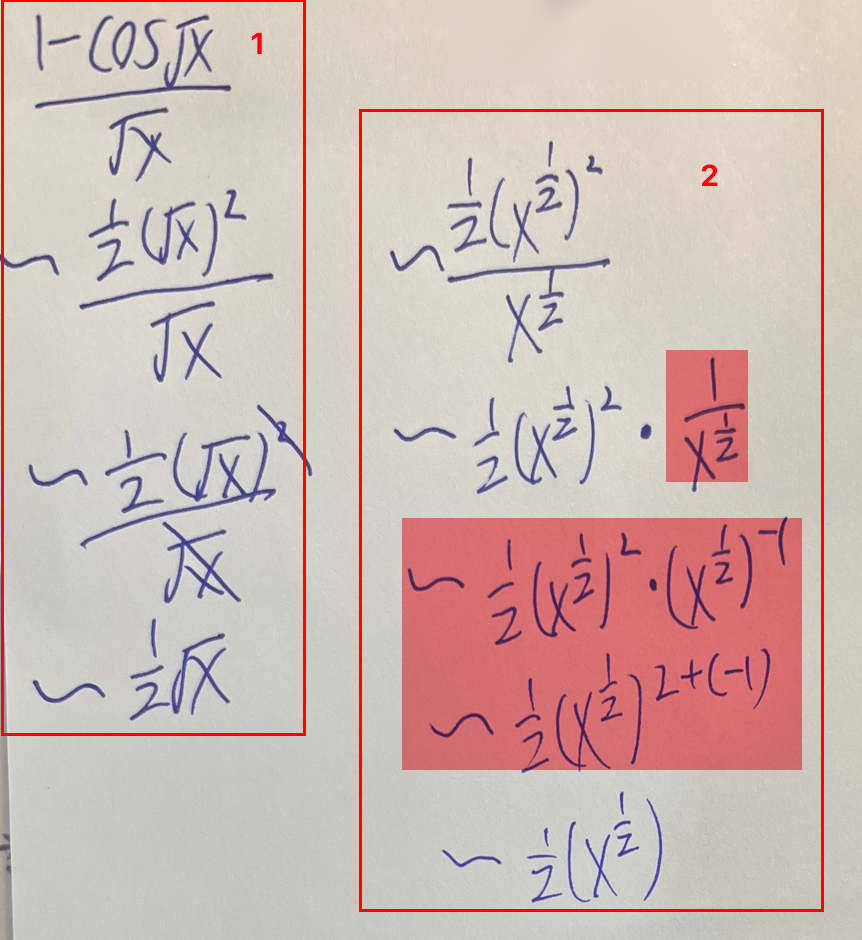 1
(1-cos√x)/√x
~ (1/2(√x)²)/√x
~ (1/2(√x)²)/√x
~ 1/2√x
2
~ (1/2(x^(1/2))²)/x^(1/2)
~ 1/2(x^(1/2))² · 1/x^(1/2)
~ 1/2(x^(1/2))² · (x^(1/2))^-1
~ 1/2(x^(1/2))^(2+(-1))
~ 1/2(x^(1/2))